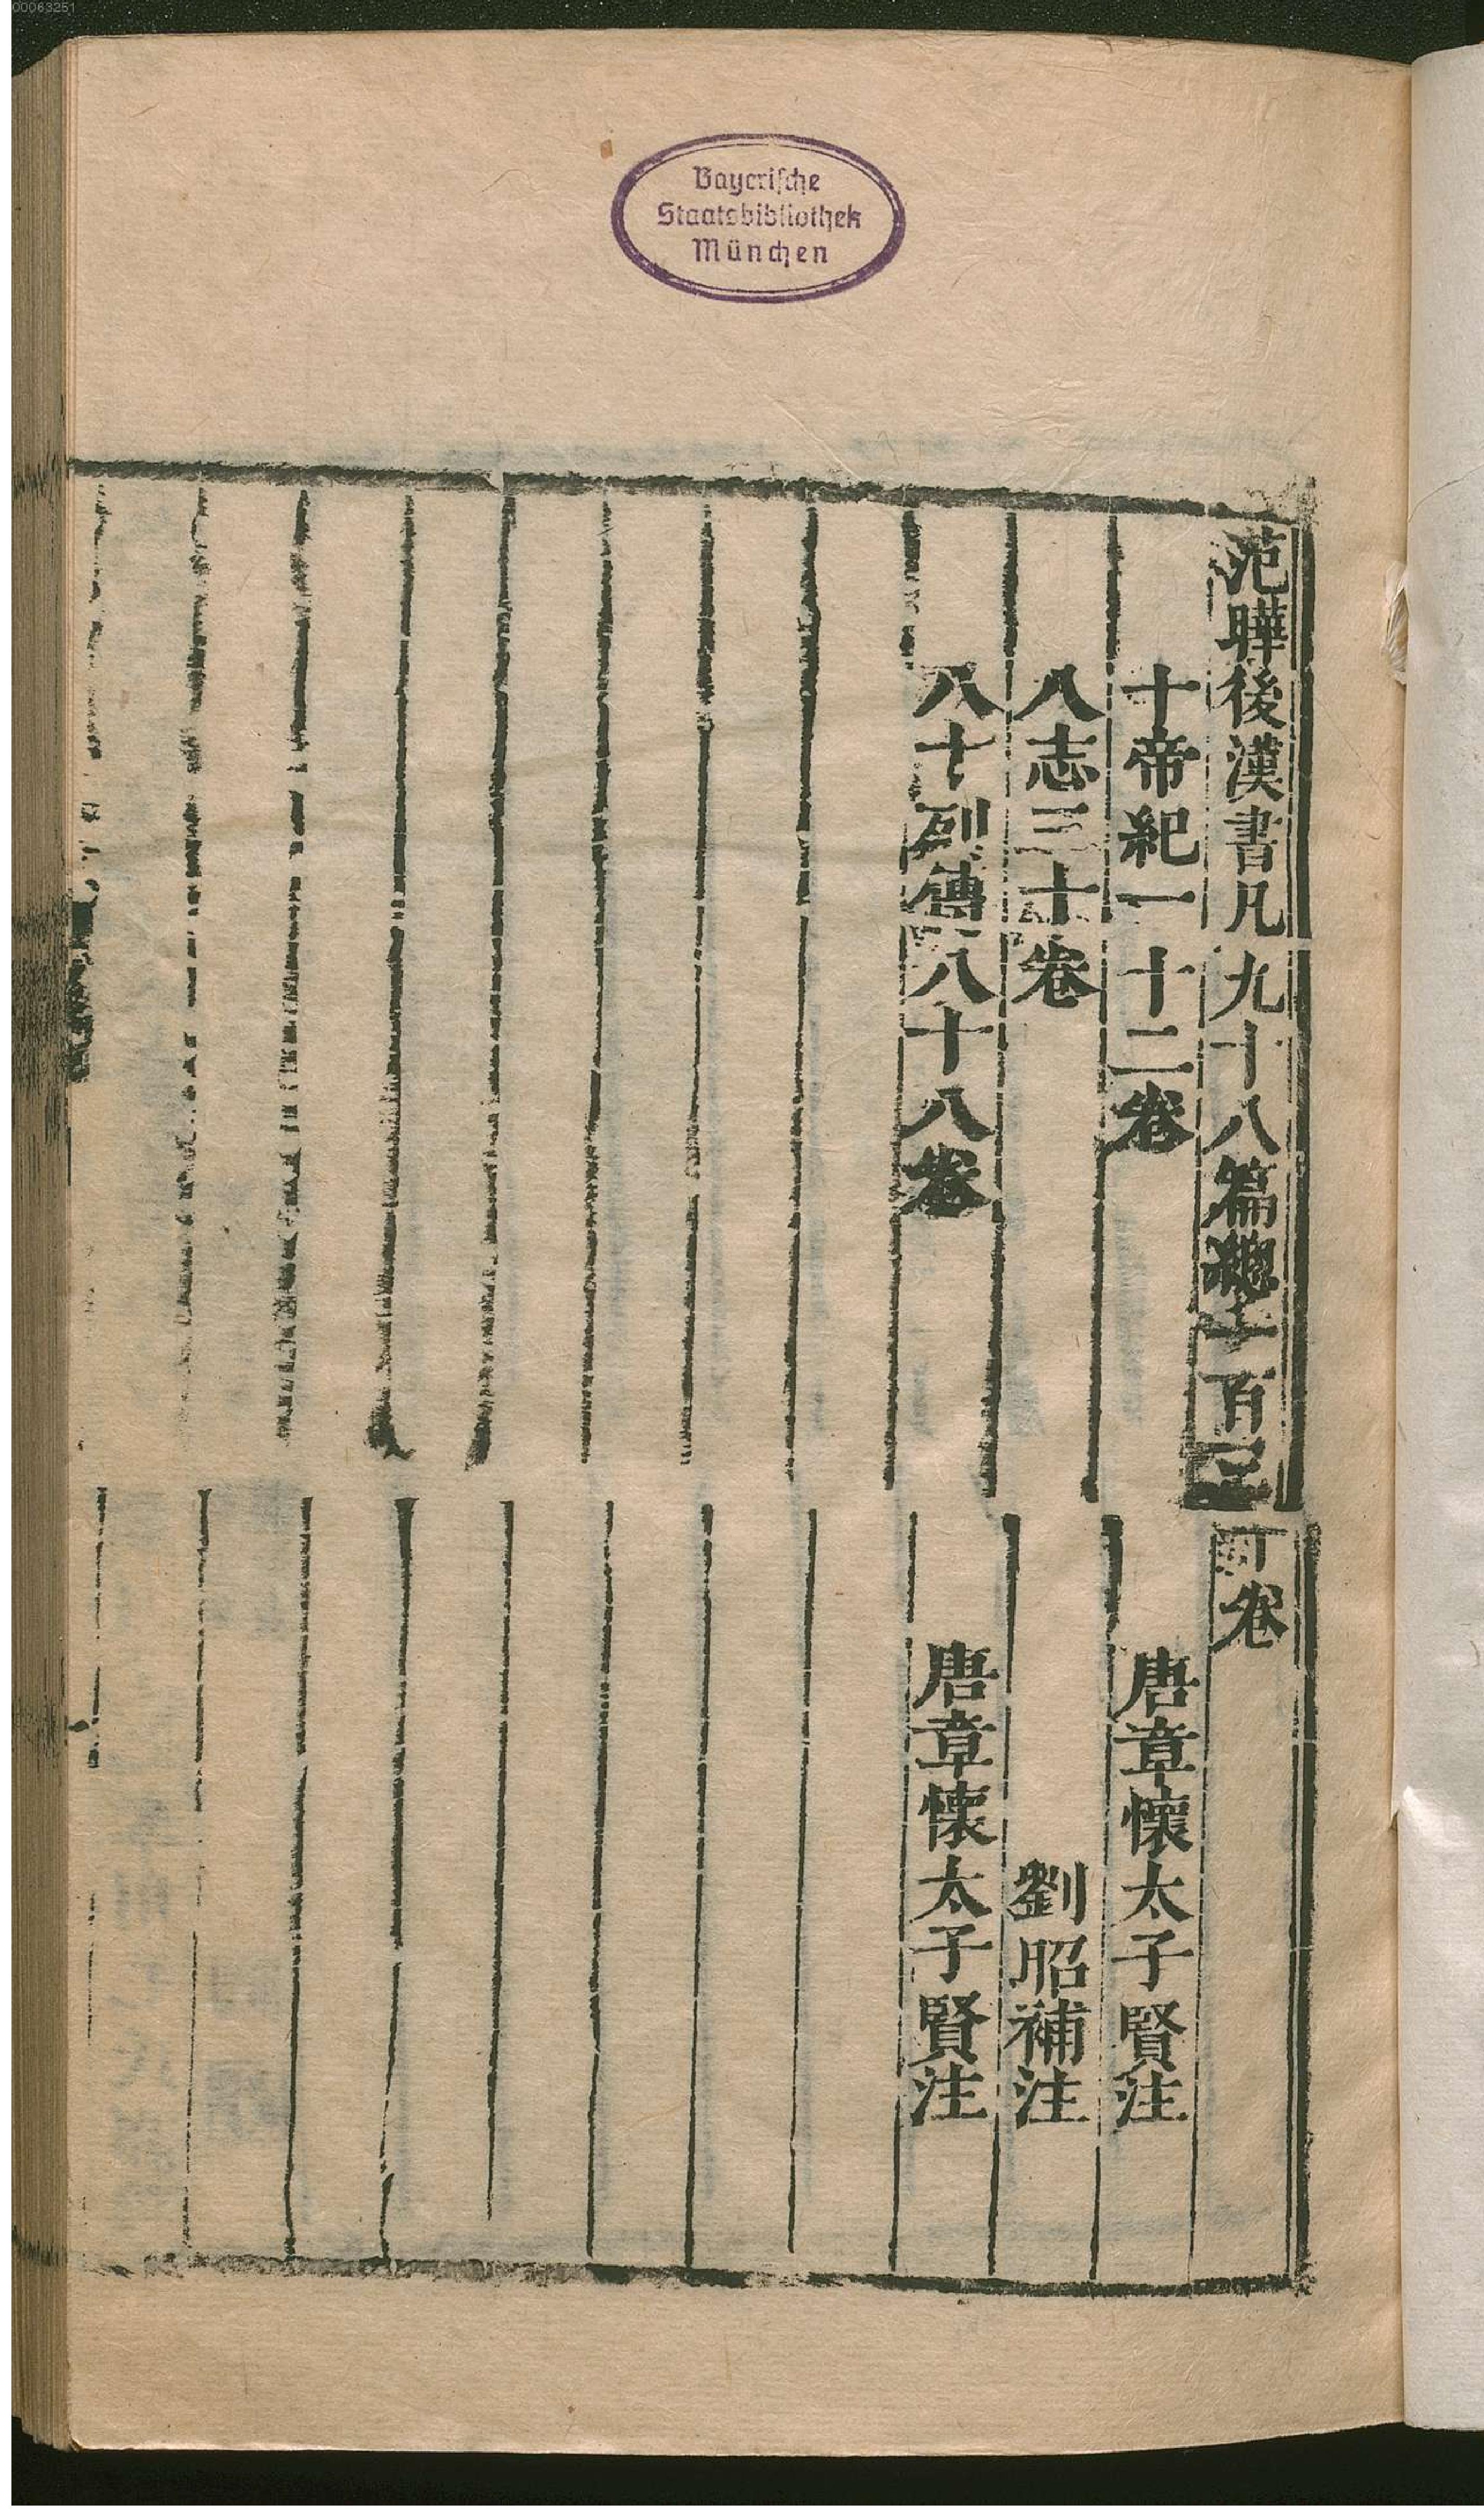 00063251
Bayerische
Staatsbibliothek
München
范曄後漢書凡九十八篇總一百三十卷
十帝紀一十二卷 唐章懷太子賢注
八志三十卷 劉昭補注
八十列傳八十八卷 唐章懷太子賢注